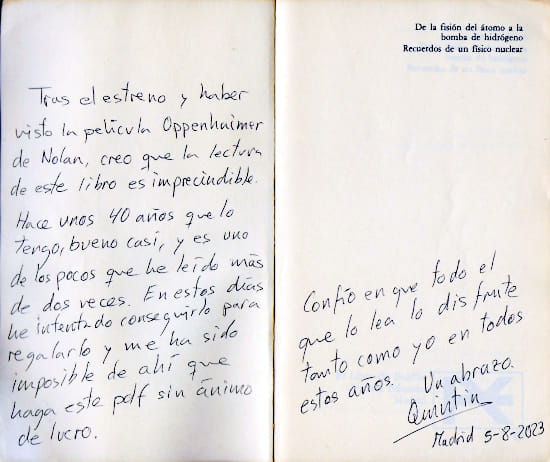 Tras el estreno y haber
visto la película Oppenhaimer
de Nolan, creo que la lectura
de este libro es imprecindible.
Hace unos 40 años que lo
tengo, bueno casi, y es uno
de los pocos que he leído más
de dos veces. En estos días
he intentado conseguirlo para
regalarlo y me ha sido
imposible de ahí que
haga este pdf sin ánimo
de lucro.
De la fisión del átomo a la
bomba de hidrógeno
Recuerdos de un físico nuclear
Confío en que todo el
que lo lea lo disfrute
tanto como yo en todos
estos años. Un abrazo.
Quintín
Madrid 5-8-2023